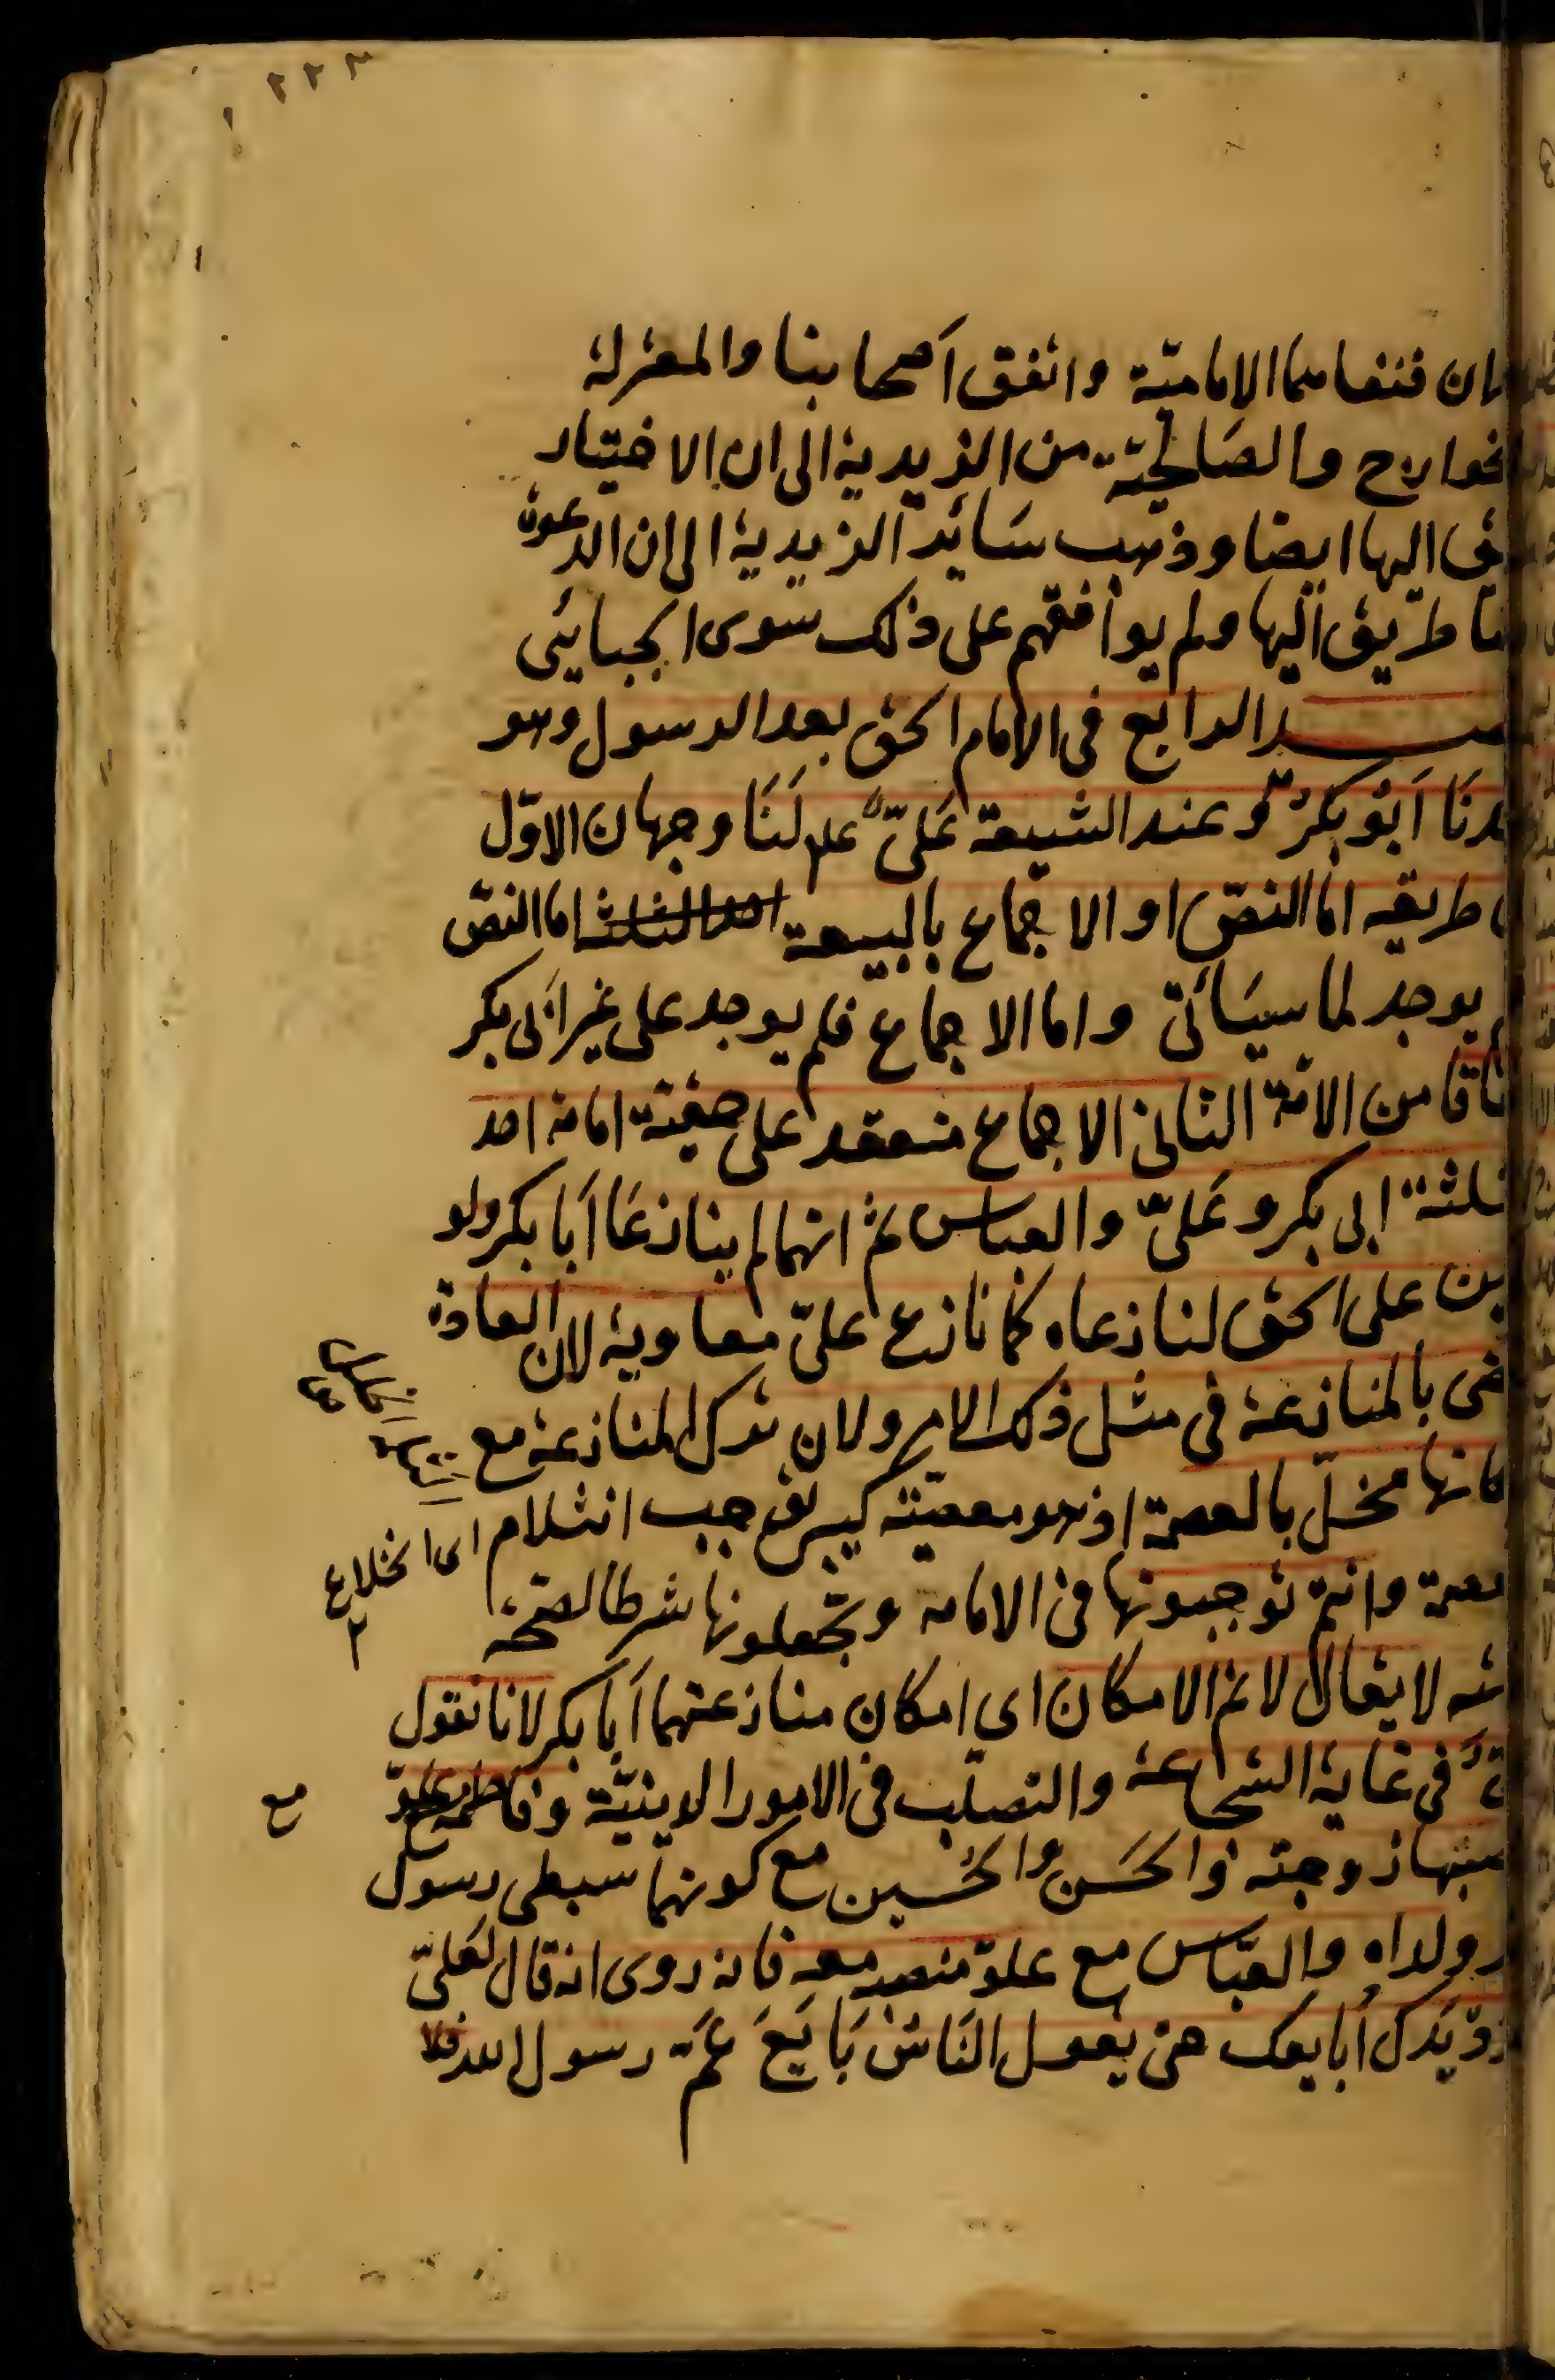 ٢٢٣
ان فنفاهما الامامیّة واتفق اَصحابنا والمعتزلة
خوارج والصَالحیّة من الزیدیة الى ان الاختیار
الیها ایضا وذهب سَائر الزیدیة الى ان الدعوة
طریق الیها ولم یوافقهم على ذلك سوى الجبائی
الرابع فى الامام الحق بعد الرسول وهو
دنَا اَبُو بَكرٌ وعند الشیعة عَلىّ علم لَنَا وجهان الاوّل
طریقه اما النصّ او الاجماع بالبیعة احد الثلثة اما النصّ
یوجد لما سیَأتى واما الاجماع فلم یوجد على غیر اَبى بكر
اقا من الامّة الثانى الاجماع منعقد على حقیّة امامة احد
ثلثة ابى بكر وعَلىّ والعباس ثم انهما لم ینازعَا اَبا بكر ولو
على الحق لنازعاه كما نازع علىّ معاویة لان العادة
ضى بالمنازعة فى مثل ذلك الامر ولان ترك المنازعة مع
كانها مخلّ بالعصمة اذ هو معصیّته كبیرة توجب انثلام
عصمة وانتم توجبونها فى الامامة وتجعلونها شرطا لصحّة
لا یقال لا نم الامكان اى امكان منازعتهما اَبا بكر لانا نقول
فى غایة الشجاعة والتصلّب فى الامور الدینیّة وفاطمة مع علوّ
منصبها زوجته والحَسَن والحُسین مع كونهما سبطى رسول
ولداه والعبّاس مع علوّ منصبه معه فانه روى انه قال لعَلىّ
یَدك اُبایعك حتى یقول النَاسُ بَایَعَ عَمّ رسول الله
اى انخلاع
٢
مع